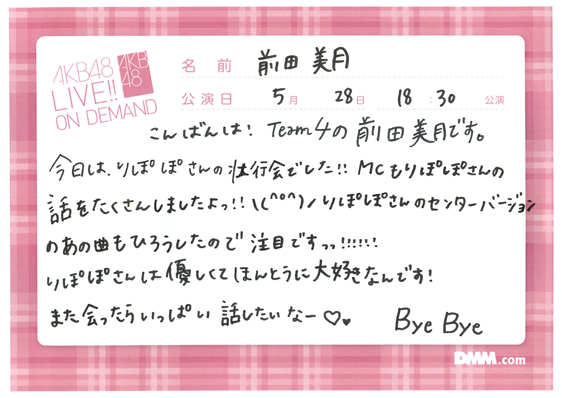 AKB48
LIVE!!
ON DEMAND
AKB
48
名 前 前田 美月
公演日 5月 28日 18:30 公演
こんばんは! Team4の前田美月です。
今日は、りぽぽさんの壮行会でした!! MCもりぽぽさんの
話をたくさんしましたよっ!! \(^o^)/ りぽぽさんのセンターバージョン
のあの曲もひろうしたので 注目ですっっ!!!!!!
りぽぽさんは優しくてほんとうに大好きなんです!
また会ったらいっぱい 話したいなー♡♥
Bye Bye
DMM.com